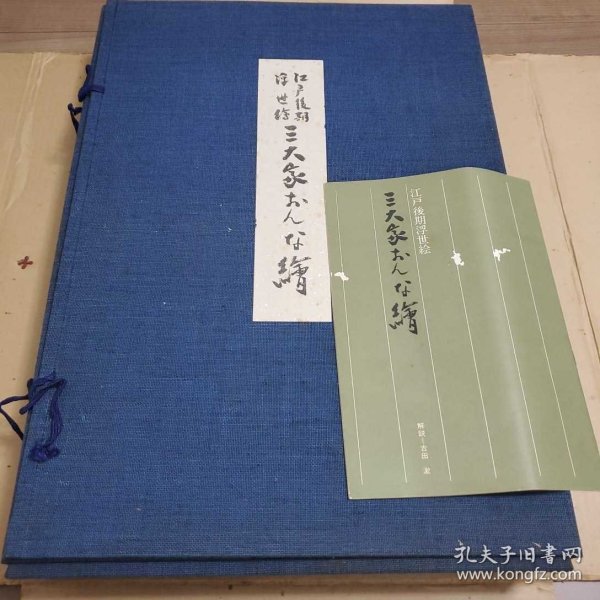 江戸後期
浮世繪
三大家おんな繪
江戸後期浮世絵
三大家おんな繪
解説＝吉田 漱
孔夫子旧书网
www.kongfz.com